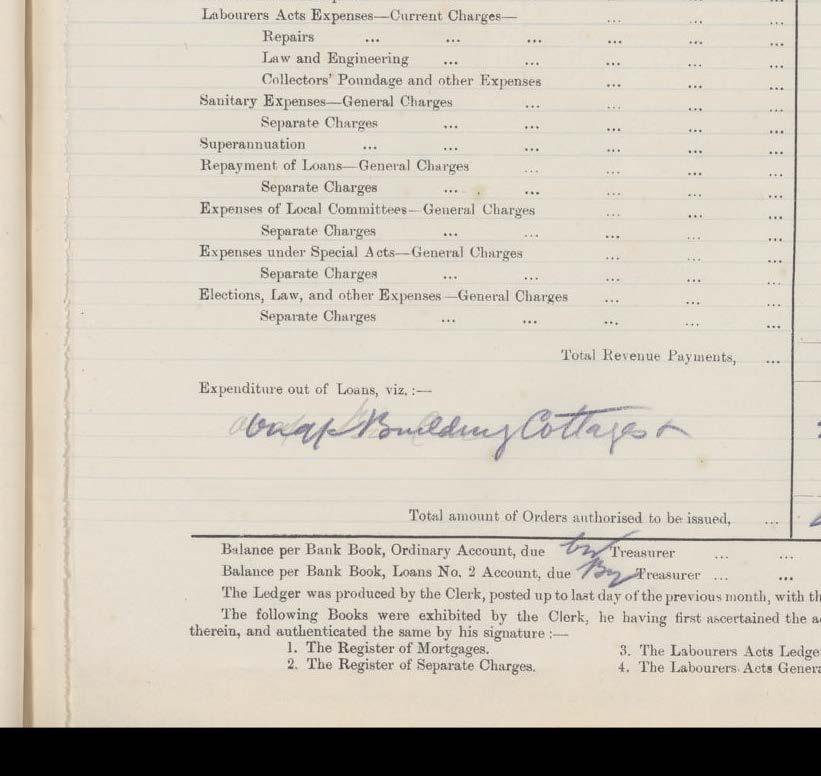 Labourers Acts Expenses—Current Charges— ... ... ...
Repairs ... ... ... ... ... ...
Law and Engineering ... ... ... ... ...
Collectors' Poundage and other Expenses ... ... ...
Sanitary Expenses—General Charges ... ... ... ...
Separate Charges ... ... ... ... ...
Superannuation ... ... ... ... ... ...
Repayment of Loans—General Charges ... ... ... ...
Separate Charges ... ... ... ... ...
Expenses of Local Committees—General Charges ... ... ...
Separate Charges ... ... ... ... ...
Expenses under Special Acts—General Charges ... ... ...
Separate Charges ... ... ... ... ...
Elections, Law, and other Expenses—General Charges ... ... ...
Separate Charges ... ... ... ... ...
Total Revenue Payments, ...
Expenditure out of Loans, viz. :—
Building Cottages
Total amount of Orders authorised to be issued, ...
Balance per Bank Book, Ordinary Account, due by Treasurer ... ...
Balance per Bank Book, Loans No. 2 Account, due By Treasurer ... ...
The Ledger was produced by the Clerk, posted up to last day of the previous month, with th
The following Books were exhibited by the Clerk, he having first ascertained the a
therein, and authenticated the same by his signature :—
1. The Register of Mortgages. 3. The Labourers Acts Ledge
2. The Register of Separate Charges. 4. The Labourers Acts Genera